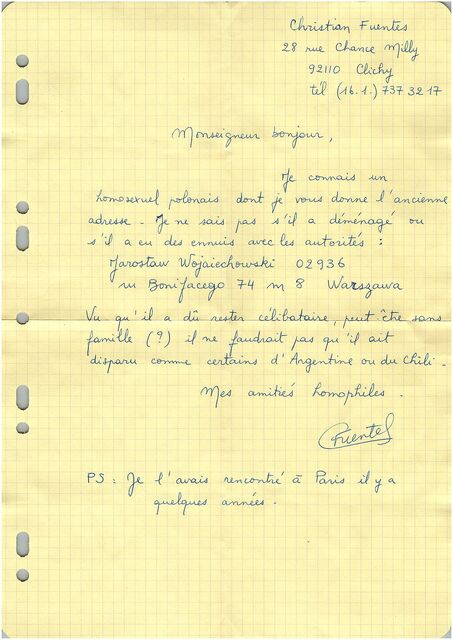 Christian Fuentes
28 rue Chance Milly
92110 Clichy
tél (16.1.) 737 32 17
Monseigneur bonjour,
Je connais un
homosexuel polonais dont je vous donne l'ancienne
adresse. Je ne sais pas s'il a déménagé ou
s'il a eu des ennuis avec les autorités :
Jarostaw Wojaiechowski 02936
ru Bonifacego 74 m 8 Warszawa
Vu qu'il a dû rester célibataire, peut être sans
famille (?) il ne faudrait pas qu'il ait
disparu comme certains d'Argentine ou du Chili.
Mes amitiés homophiles.
Fuentes
PS : Je l'avais rencontré à Paris il y a
quelques années.